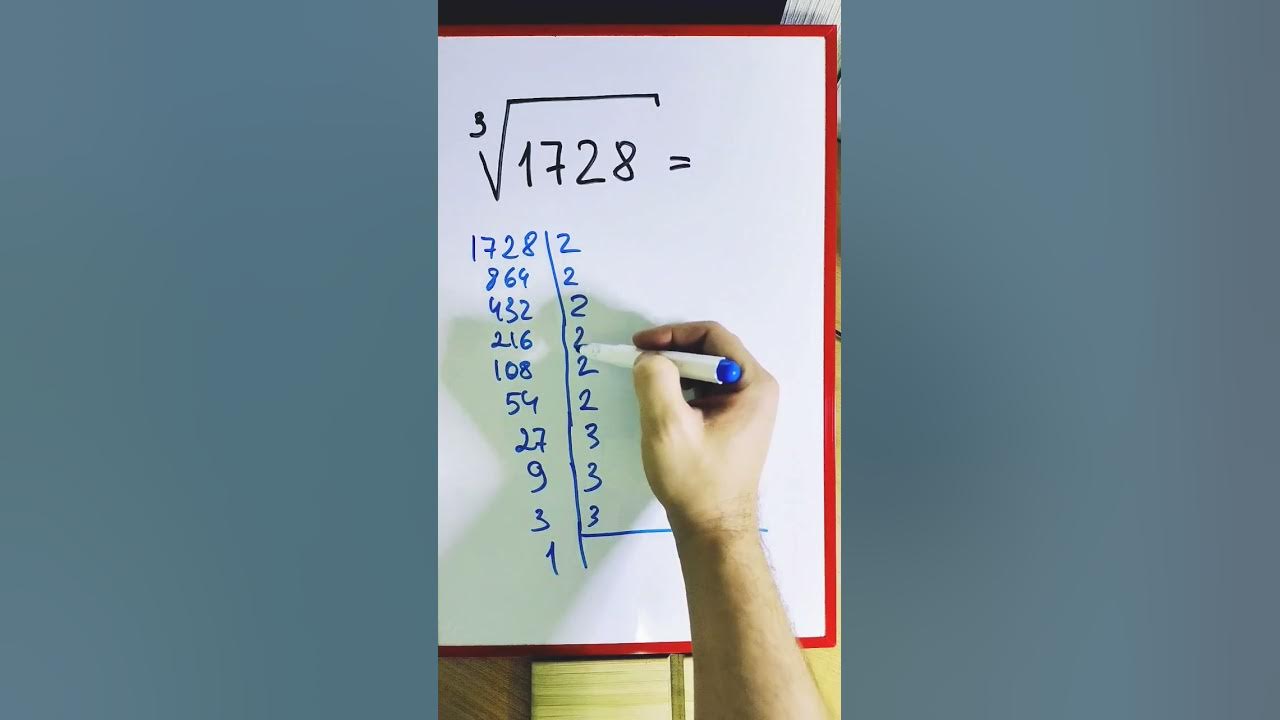 3√1728 =
1728 | 2
864 | 2
432 | 2
216 | 2
108 | 2
54 | 2
27 | 3
9 | 3
3 | 3
1 |